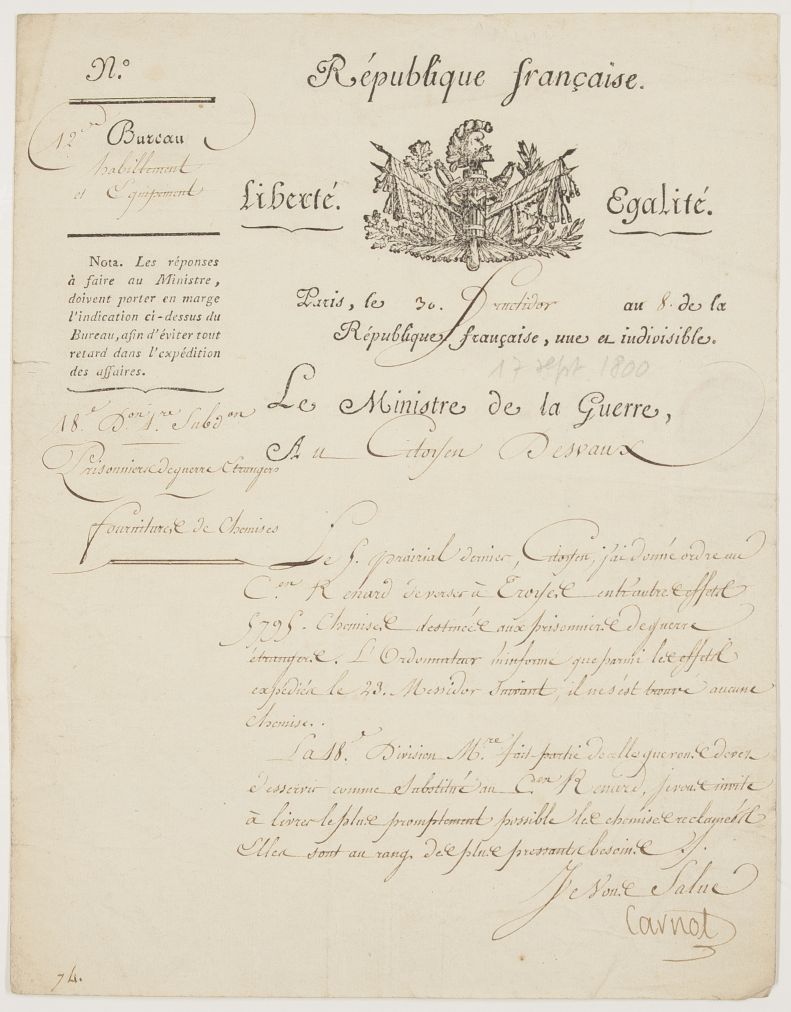 N.º
République française.
12.e Bureau
habillement
et Equipement
Liberté. Egalité.
Nota. Les réponses
à faire au Ministre,
doivent porter en marge
l'indication ci-dessus du
Bureau, afin d'éviter tout
retard dans l'expédition
des affaires.
Paris, le 30. Fructidor an 8. de la
République française, une et indivisible.
17 sept 1800
18.e D.on 1.re Subd.on
Prisonniers de guerre Etrangers
fournitures de Chemises
Le Ministre de la Guerre,
Au Citoyen Desvaux
Le 5. prairial dernier, Citoyen, j'ai donné ordre au
C.en Renard de verser à Troyes entr'autres effets
5795. Chemises destinées aux prisonniers de guerre
étrangers. L'Ordonnateur m'informe que parmi les effets
expédiés le 23. Messidor suivant, il ne s'est trouvé aucune
chemise.
La 18.e Division M.re fait partie de celles que vous devez
desservir comme Substitué au C.en Renard, je vous invite
à livrer le plus promptement possible les chemises reclamées
Elles sont au rang des plus pressants besoins.
Je Vous Salue
Carnot
74.